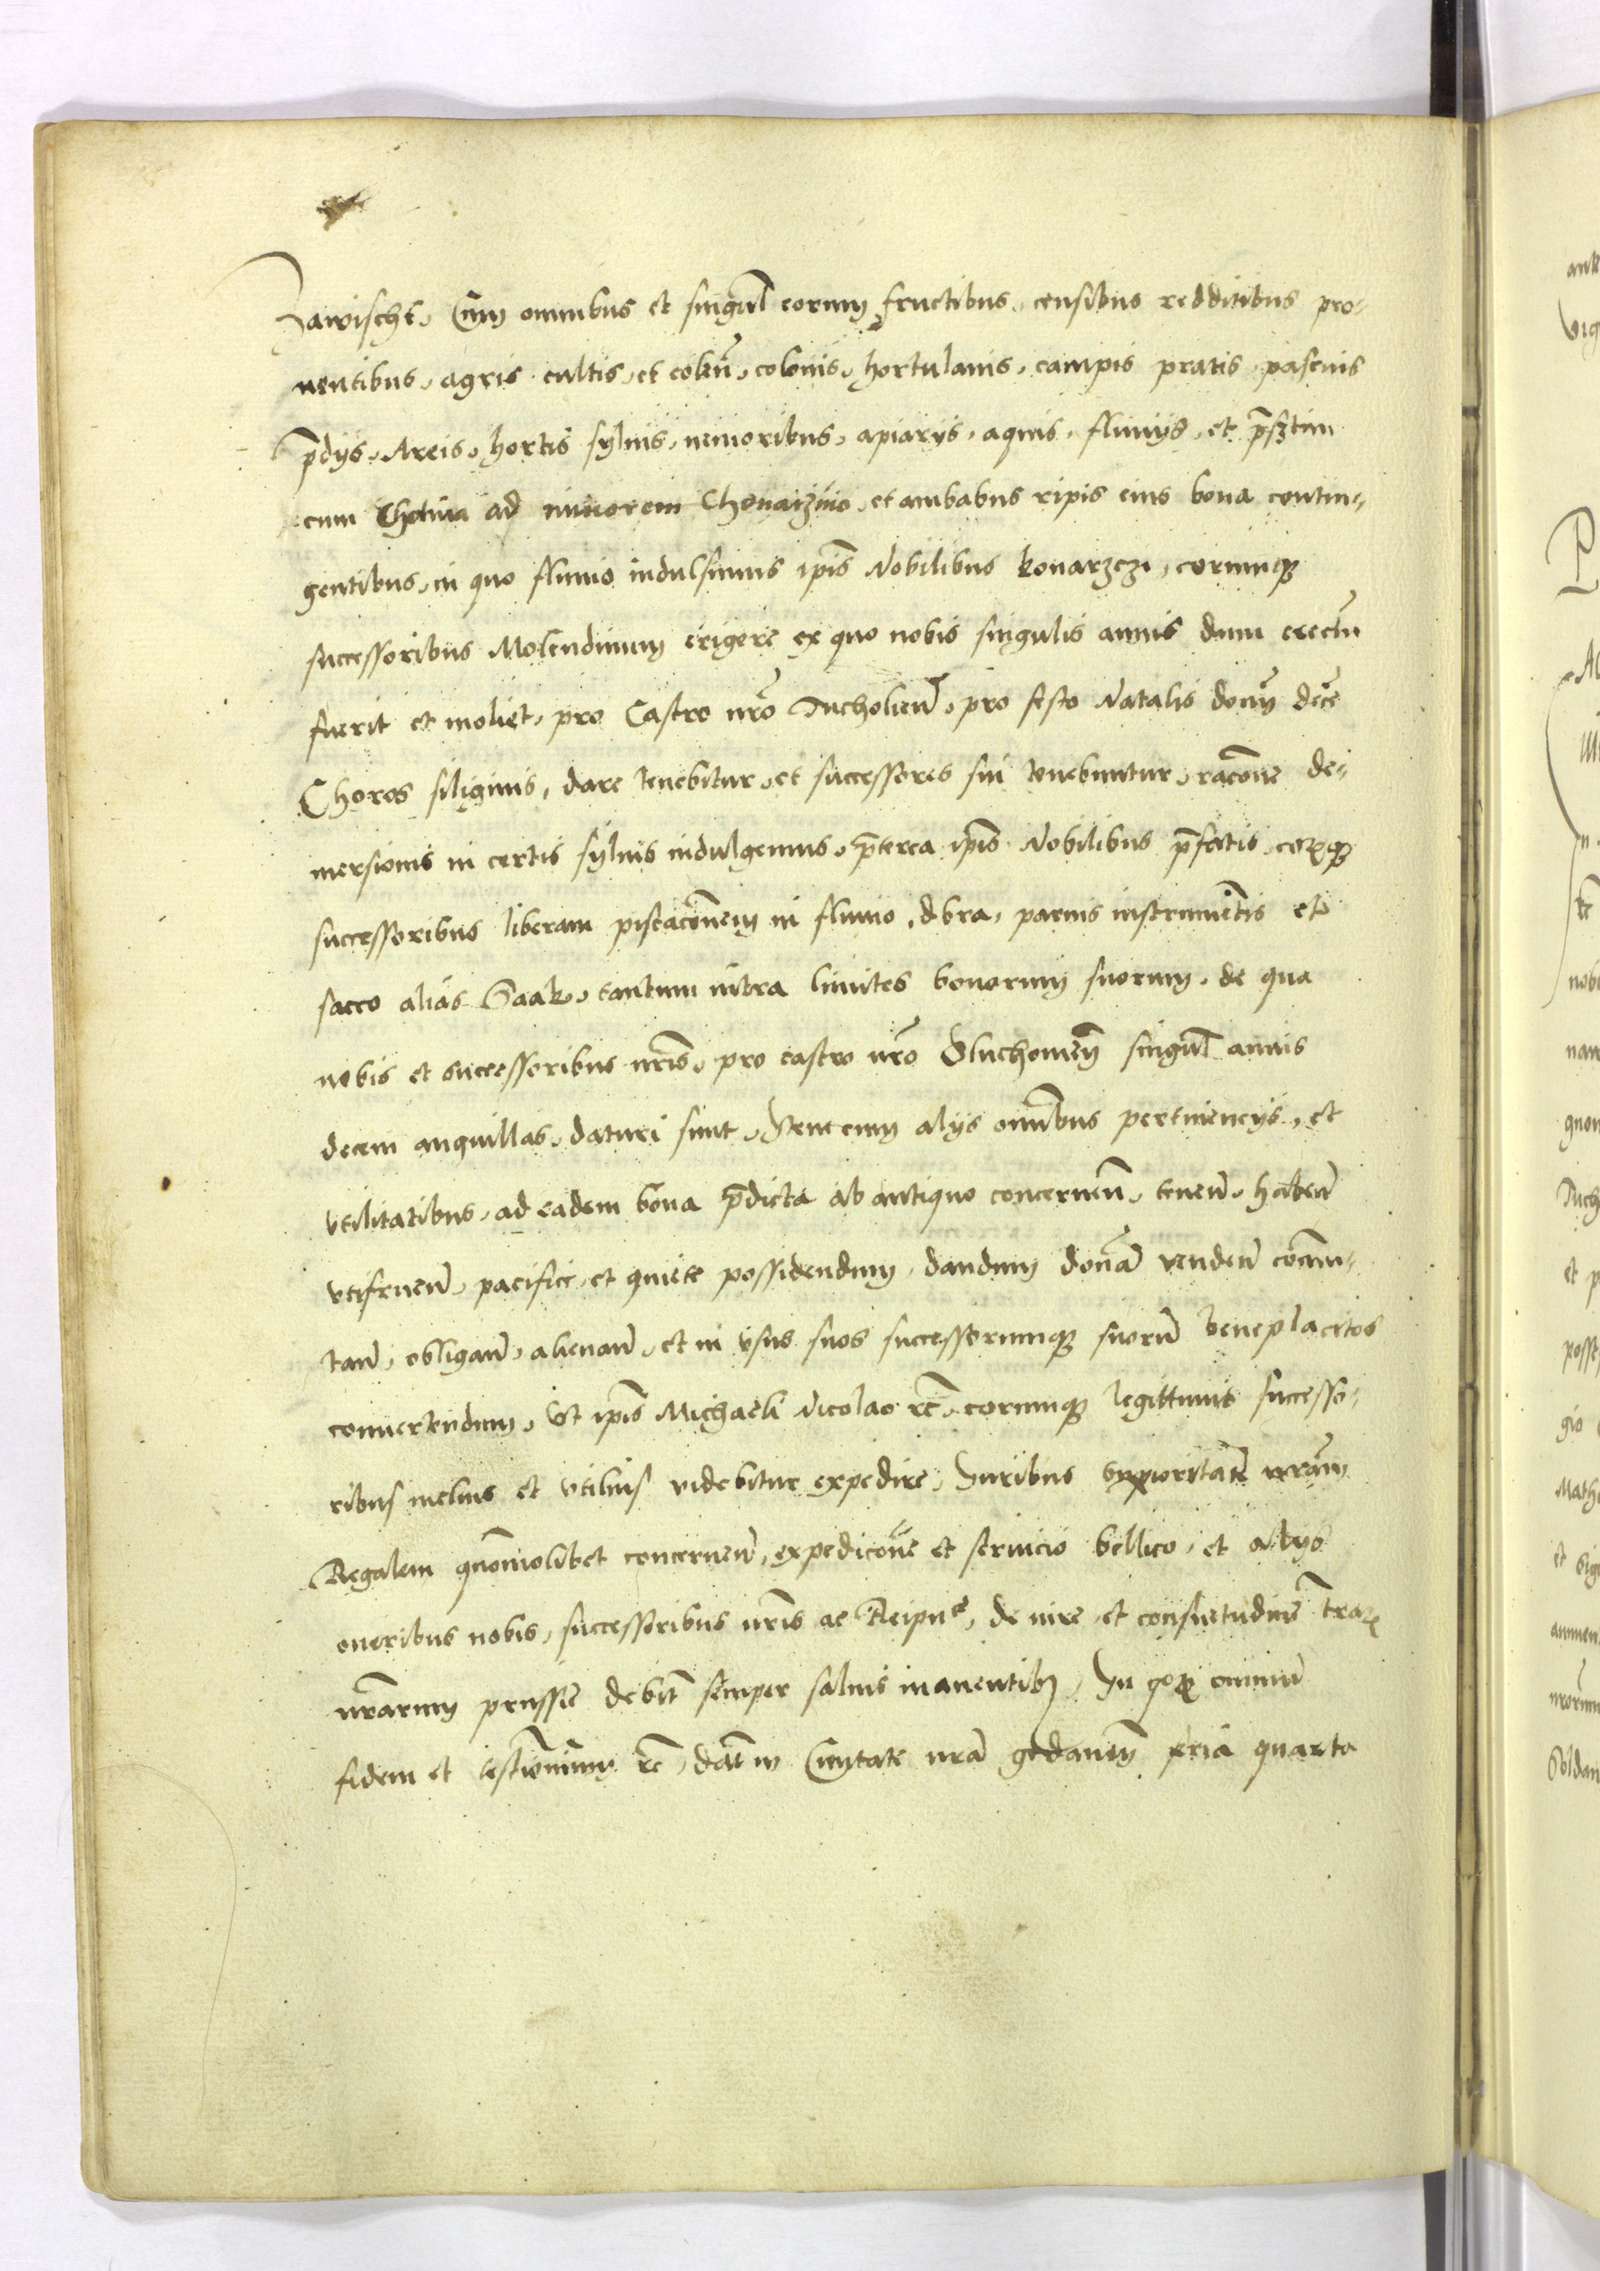 Zawischt, Cum omnibus et singul eorum fructibus, censibus redditibus pro-
uentibus, agris cultis, et colen̄, colonis, hortulanis, campis pratis, pascuis
p̄dijs, Areis, hortis syluis, nemoribus, apiarijs, aquis, fluuijs, et p̄sztim
cum ad minorem et ambabus ripis eius bona contin-
gentibus, in quo fluuio indulsimus ip̄is Nobilibus konarzczi, eorumq3
successoribus Molendinum erigere ex quo nobis singulis annis dum erectū
fuerit et moliet, pro Castro nr̄o Tucholien̄, pro festo Natalis domī decē
Choros siliginis, dare tenebitur, et successores sui tenebuntur, rac̄one de-
mersionis in certis syluis indulgemus, p̄terea ip̄is Nobilibus p̄fatis, eorūq3
successoribus liberam piscac̄onem in fluuio, dbra, paruis instrumētis et
sacco alias Saak, tantum intra limites bonorum suorum, de qua
nobis et successoribus nr̄is, pro castro nr̄o Sluchouien̄ singul annis
decem anguillas, daturi sunt, Nencnum alijs omībus pertinencijs, et
vtilitatibus, ad eadem bona p̄dicta ab antiquo concernen̄, tenen̄, haben̄
vtifruen̄, pacifice et quiete possidendum, dandum donan̄ venden̄ com̄u-
tan̄, obligan̄, alienan̄, et in vsus suos successorumq3 suorū beneplacitos
conuertendum, Vt ip̄is Michaeli Nicolao rc̄, eorumq3 legittimis successo-
ribus melius et vtilius videbitur expedire, Iuribus superioritatē nr̄am
Regalem quomolibet concernen̄, expedic̄one et seruicio bellico, et alijs
oneribus nobis, successoribus nr̄is ac Reipu͡e, de iure et consuetudine terrar͡
nr̄arum prussie debit̄ semper saluis manentib3, In quor͡ omniū
fidem et testimonium rc̄, dat̄ in Ciuitate nr̄a gedanen̄ feria quarta